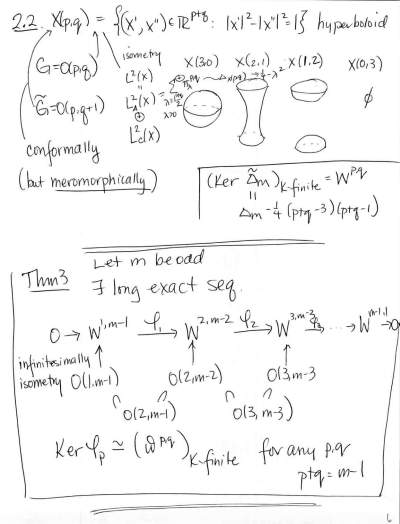 2.2. X(p,q) = {(x', x'') ∈ ℝ^{p+q} : |x'|² - |x''|² = 1} hyperboloid
isometry
G = O(p,q)
L²(X)
X(3,0) X(2,1) X(1,2) X(0,3)
G̃ = O(p,q+1)
L²_d(X) =
λ>0
⊕
L²_c(X)
φ
conformally
(but meromorphically)
(Ker Δ̃_m)_{K-finite} = W^{p,q}
||
Δ_m - 1/4 (p+q-3)(p+q-1)
Let m be odd
Thm3 ∃ long exact seq.
0 → W^{1,m-1} →^{φ₁} W^{2,m-2} →^{φ₂} W^{3,m-3} →^{φ₃} ... → W^{m-1,1} → 0
infinitesimally
isometry O(1,m-1) O(2,m-2) O(3,m-3
O(2,m-1) O(3,m-3)
Ker φ_p ≃ (ω̃^{p,q})_{K-finite} for any p,q
p+q = m-1